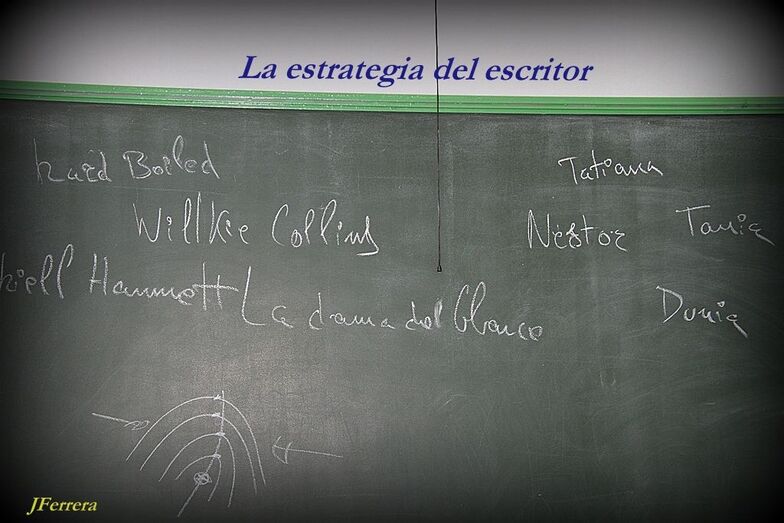 La estrategia del escritor
Hard Boiled
Tatiana
Willkie Collins
Néstor
Tania
hiell Hammett
La dama del Blanco
Dunia
JFerrera